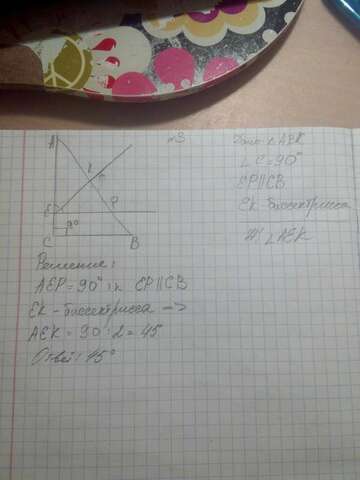 A
E
P
C
B
∠C=90°
EP||CB
EK-биссектриса
∠AEK
Решение:
AEP=90° EP||CB
EK-биссектрисса →
AEK = 90:2=45
Ответ: 45°